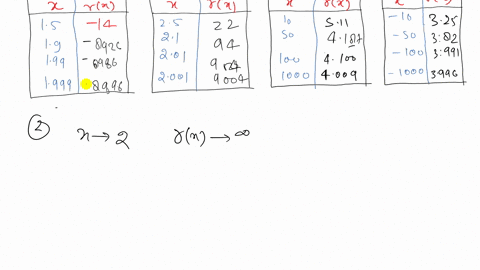 x r(x)
1.5 -14
1.9 -8926
1.99 -8986
1.999 8996
x r(x)
2.5 22
2.1 94
2.01 904
2.001 9004
x r(x)
10 5.11
50 4.187
100 4.100
1000 4.009
x
-10 3.25
-50 3.82
-100 3.991
-1000 3996
2 x → 2 r(x) → ∞